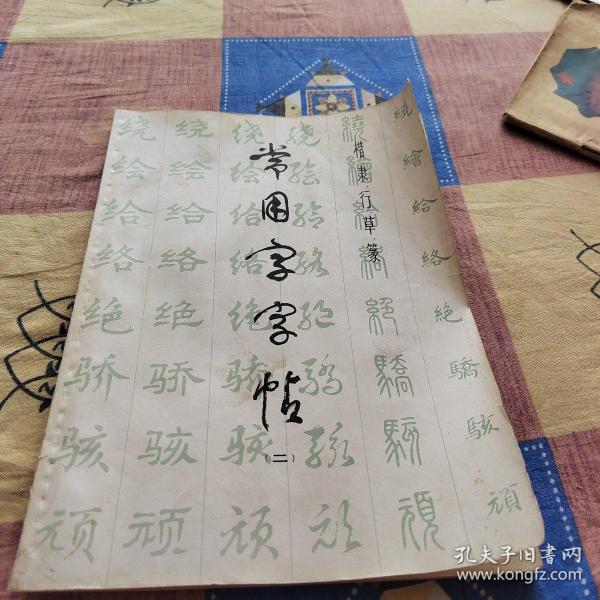 常用字字帖
(二)
楷隶行草篆
绕绕绕绕繞繞
绘绘绘绘繪繪
给给给给給給
络络络络絡絡
绝绝绝绝絕絶
骄骄骄骄驕驕
骇骇骇骇駭駭
顽顽顽顽頑頑
孔夫子旧书网
www.kongfz.com